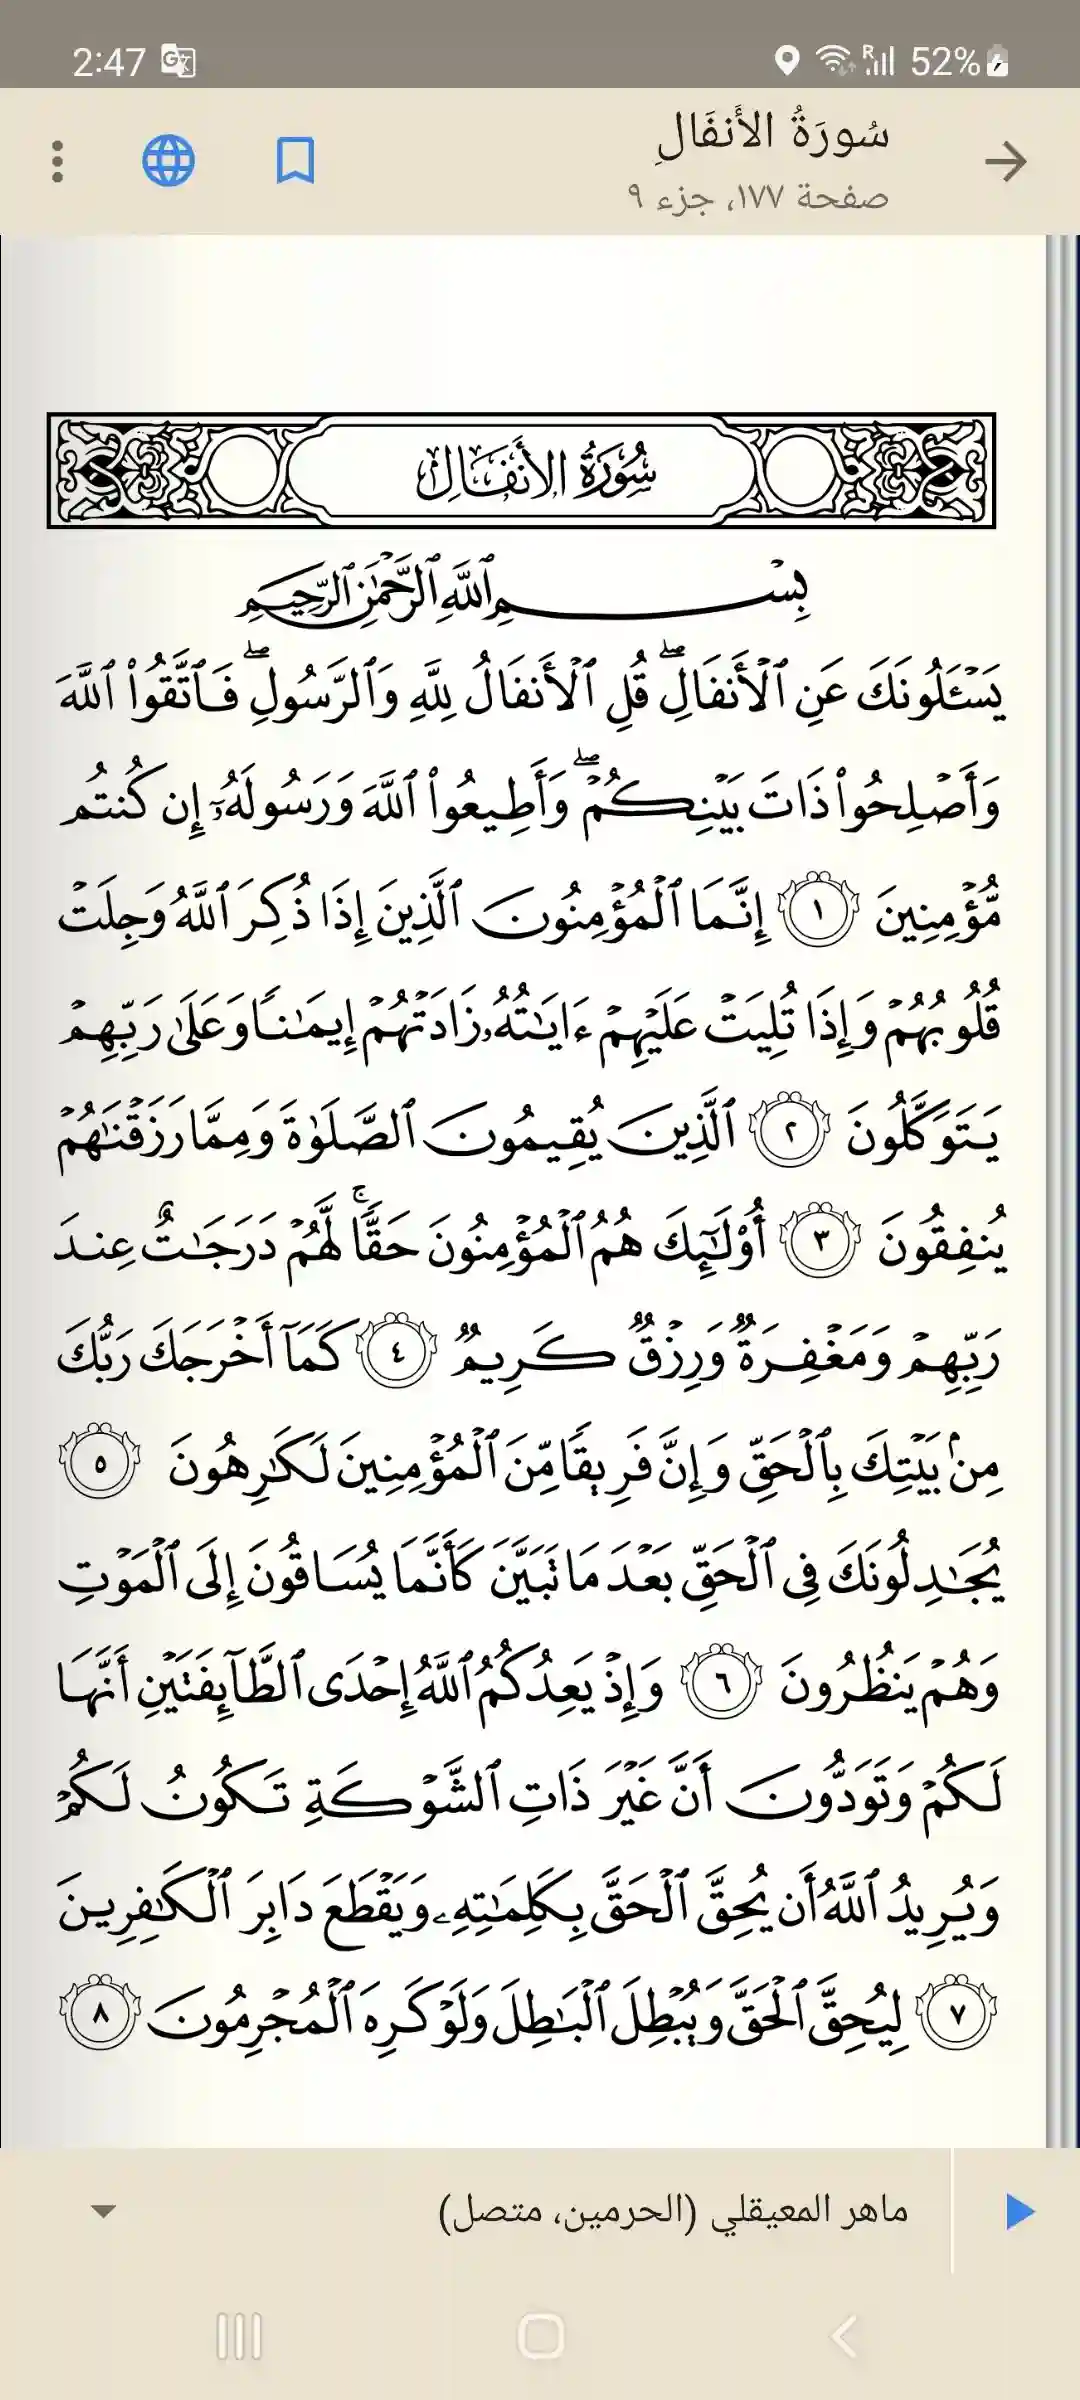 2:47
52%
سُورَةُ الأَنفَالِ
صفحة ١٧٧، جزء ٩
سُورَةُ الأَنفَالِ
بِسْمِ ٱللَّهِ ٱلرَّحْمَٰنِ ٱلرَّحِيمِ
يَسْـَٔلُونَكَ عَنِ ٱلْأَنفَالِۖ قُلِ ٱلْأَنفَالُ لِلَّهِ وَٱلرَّسُولِۖ فَٱتَّقُوا۟ ٱللَّهَ
وَأَصْلِحُوا۟ ذَاتَ بَيْنِكُمْۖ وَأَطِيعُوا۟ ٱللَّهَ وَرَسُولَهُۥٓ إِن كُنتُم
مُّؤْمِنِينَ ١ إِنَّمَا ٱلْمُؤْمِنُونَ ٱلَّذِينَ إِذَا ذُكِرَ ٱللَّهُ وَجِلَتْ
قُلُوبُهُمْ وَإِذَا تُلِيَتْ عَلَيْهِمْ ءَايَٰتُهُۥ زَادَتْهُمْ إِيمَٰنًا وَعَلَىٰ رَبِّهِمْ
يَتَوَكَّلُونَ ٢ ٱلَّذِينَ يُقِيمُونَ ٱلصَّلَوٰةَ وَمِمَّا رَزَقْنَٰهُمْ
يُنفِقُونَ ٣ أُو۟لَٰٓئِكَ هُمُ ٱلْمُؤْمِنُونَ حَقًّاۚ لَّهُمْ دَرَجَٰتٌ عِندَ
رَبِّهِمْ وَمَغْفِرَةٌ وَرِزْقٌ كَرِيمٌ ٤ كَمَآ أَخْرَجَكَ رَبُّكَ
مِنۢ بَيْتِكَ بِٱلْحَقِّ وَإِنَّ فَرِيقًا مِّنَ ٱلْمُؤْمِنِينَ لَكَٰرِهُونَ ٥
يُجَٰدِلُونَكَ فِى ٱلْحَقِّ بَعْدَ مَا تَبَيَّنَ كَأَنَّمَا يُسَاقُونَ إِلَى ٱلْمَوْتِ
وَهُمْ يَنظُرُونَ ٦ وَإِذْ يَعِدُكُمُ ٱللَّهُ إِحْدَى ٱلطَّآئِفَتَيْنِ أَنَّهَا
لَكُمْ وَتَوَدُّونَ أَنَّ غَيْرَ ذَاتِ ٱلشَّوْكَةِ تَكُونُ لَكُمْ
وَيُرِيدُ ٱللَّهُ أَن يُحِقَّ ٱلْحَقَّ بِكَلِمَٰتِهِۦ وَيَقْطَعَ دَابِرَ ٱلْكَٰفِرِينَ
٧ لِيُحِقَّ ٱلْحَقَّ وَيُبْطِلَ ٱلْبَٰطِلَ وَلَوْ كَرِهَ ٱلْمُجْرِمُونَ ٨
ماهر المعيقلي (الحرمين، متصل)